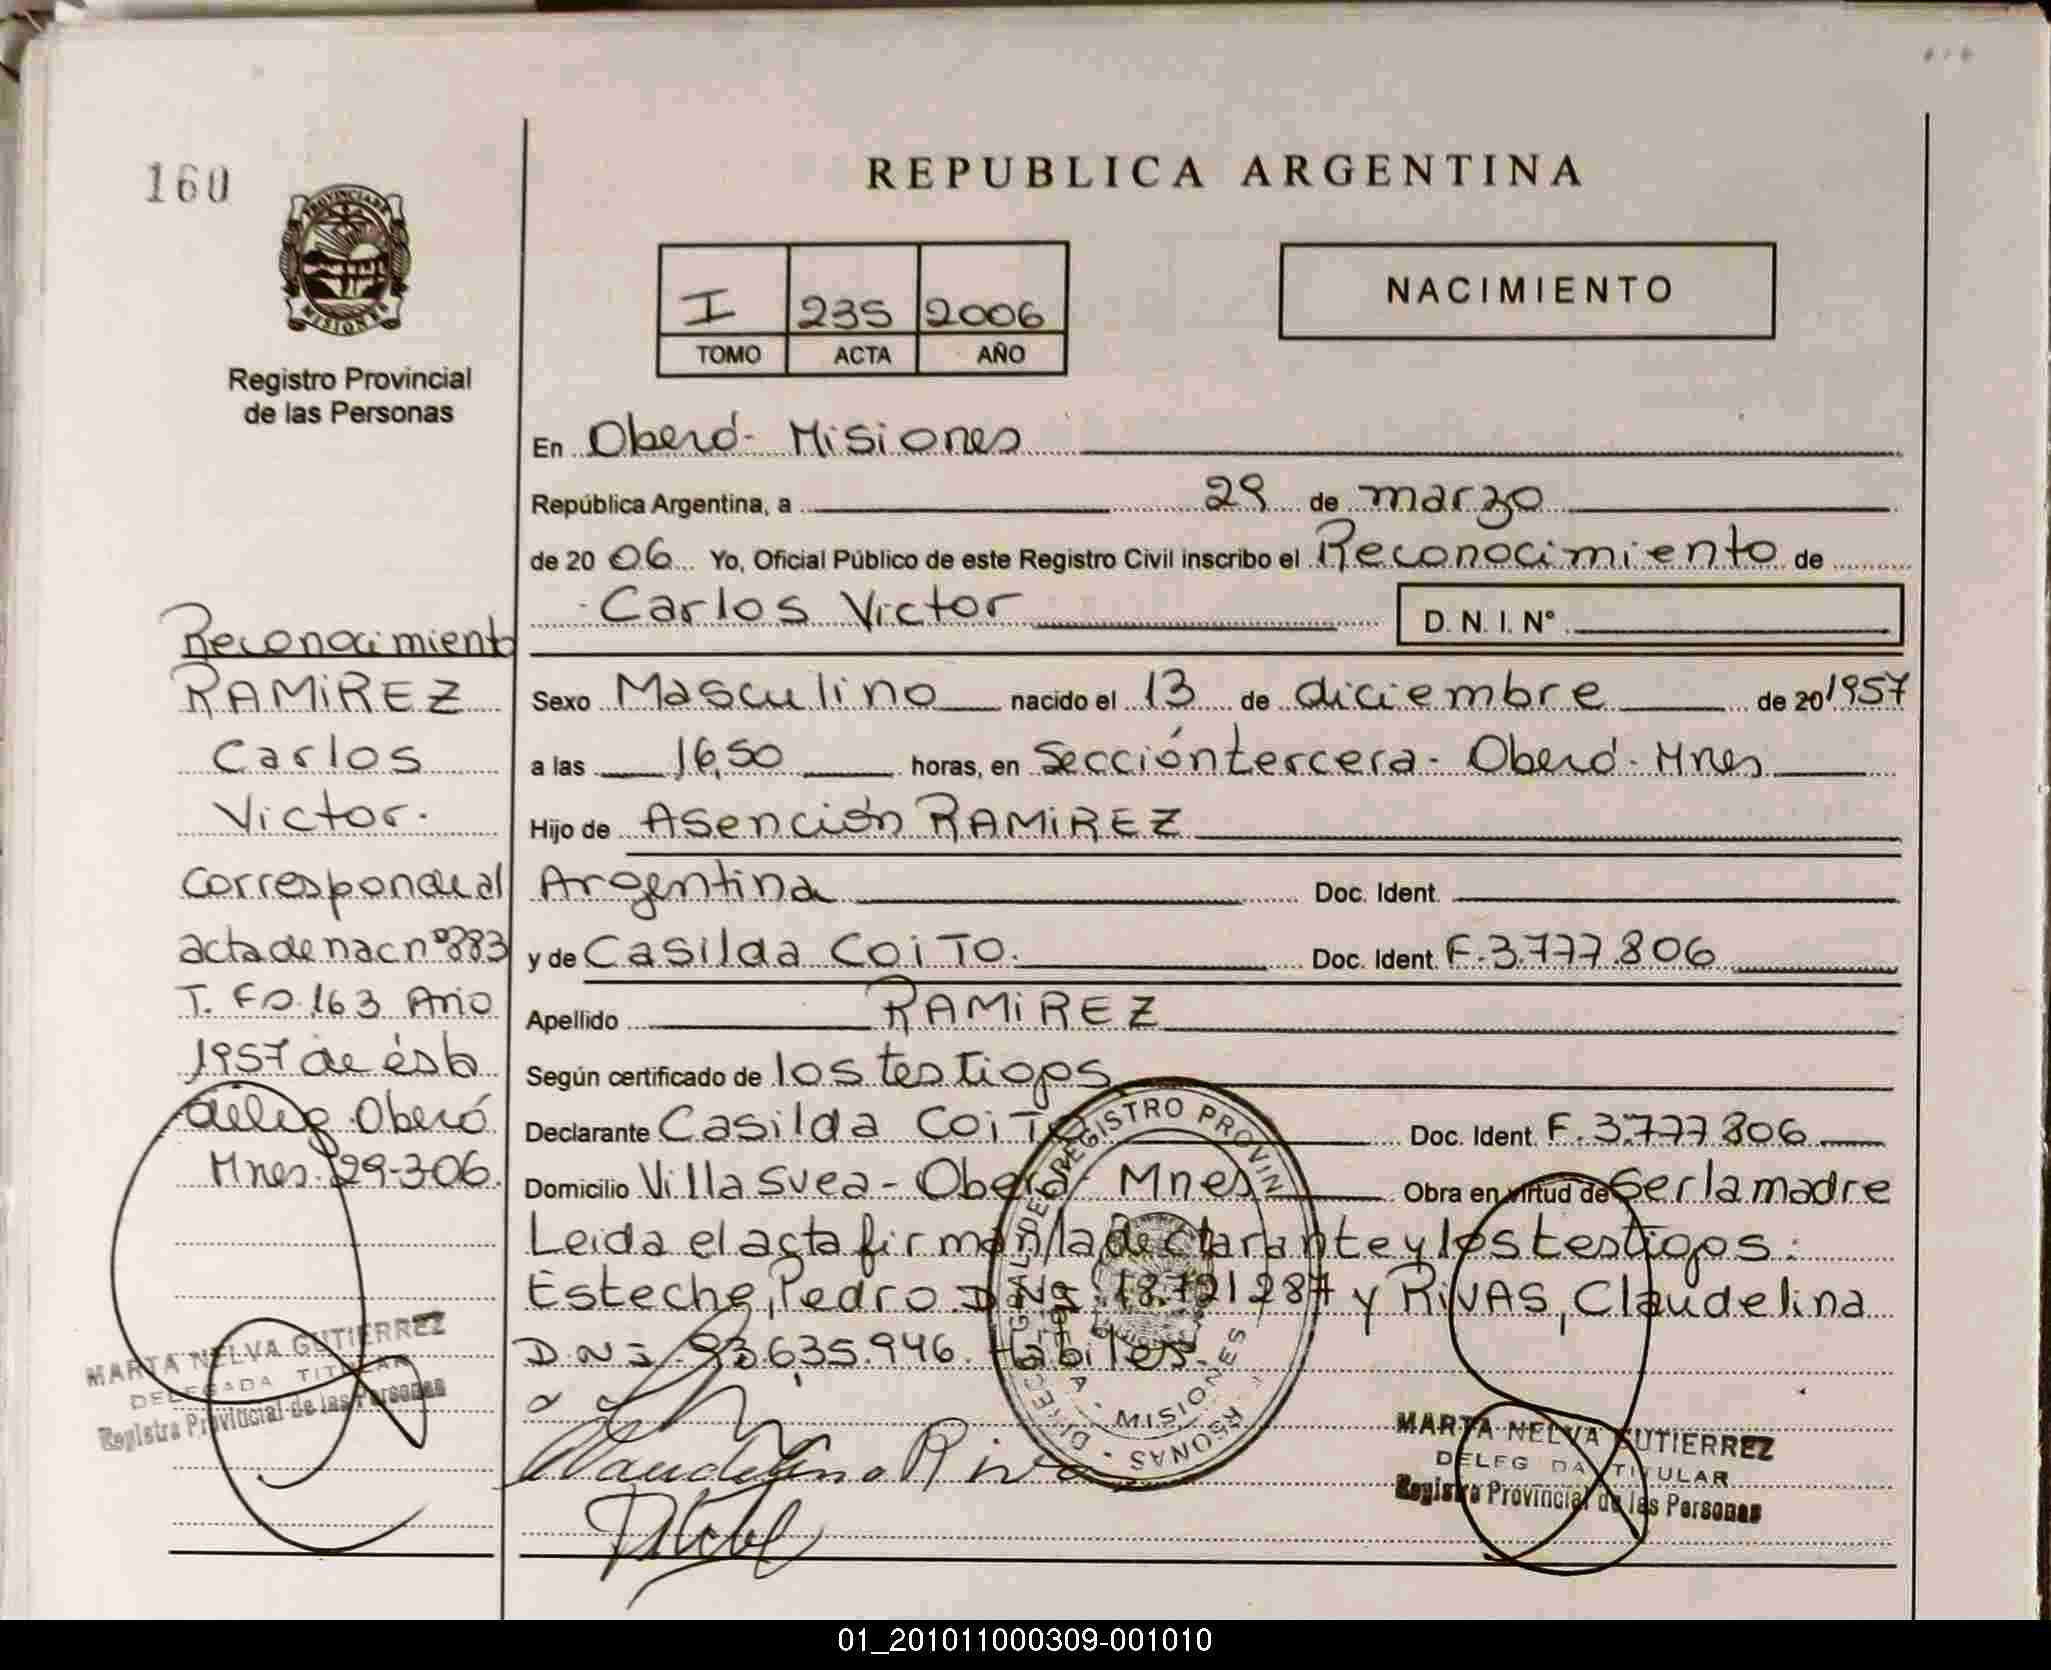 160
PROVINCIA DE
MISIONES
Registro Provincial
de las Personas
REPUBLICA ARGENTINA
I 235 2006
TOMO ACTA AÑO
NACIMIENTO
En Oberá - Misiones
República Argentina, a 29 de marzo
de 20 06 Yo, Oficial Público de este Registro Civil inscribo el Reconocimiento de
Carlos Victor D. N. I. N°
Sexo Masculino nacido el 13 de diciembre de 20 1957
a las 16,50 horas, en Sección tercera - Oberá - Mnes
Hijo de Asención RAMIREZ
Argentina Doc. Ident.
y de Casilda COiTO. Doc. Ident. F. 3.777.806
Apellido RAMIREZ
Según certificado de los testigos
Declarante Casilda COiTO Doc. Ident. F. 3.777.806
Domicilio Villa Svea - Oberá - Mnes Obra en virtud de Ser la madre
Leida el acta firman la declarante y los testigos:
Esteche, Pedro DNI 18.721.287 y RIVAS, Claudelina
DNI. 93.635.946. Hábiles.
Claudelina Riva
Reconocimiento
RAMIREZ
Carlos
Victor.
corresponde al
acta de nac nº 883
T. Fº 163 Año
1957 de ésta
deleg. Oberá
Mnes. 29-3-06.
MARTA NELVA GUTIERREZ
DELEGADA TITULAR
Registro Provincial de las Personas
DIRECC GRAL DEL REGISTRO PROVIN RSONAS
MISIONES
MARTA NELVA GUTIERREZ
DELEG DA TITULAR
Registro Provincial de las Personas
01_201011000309-001010